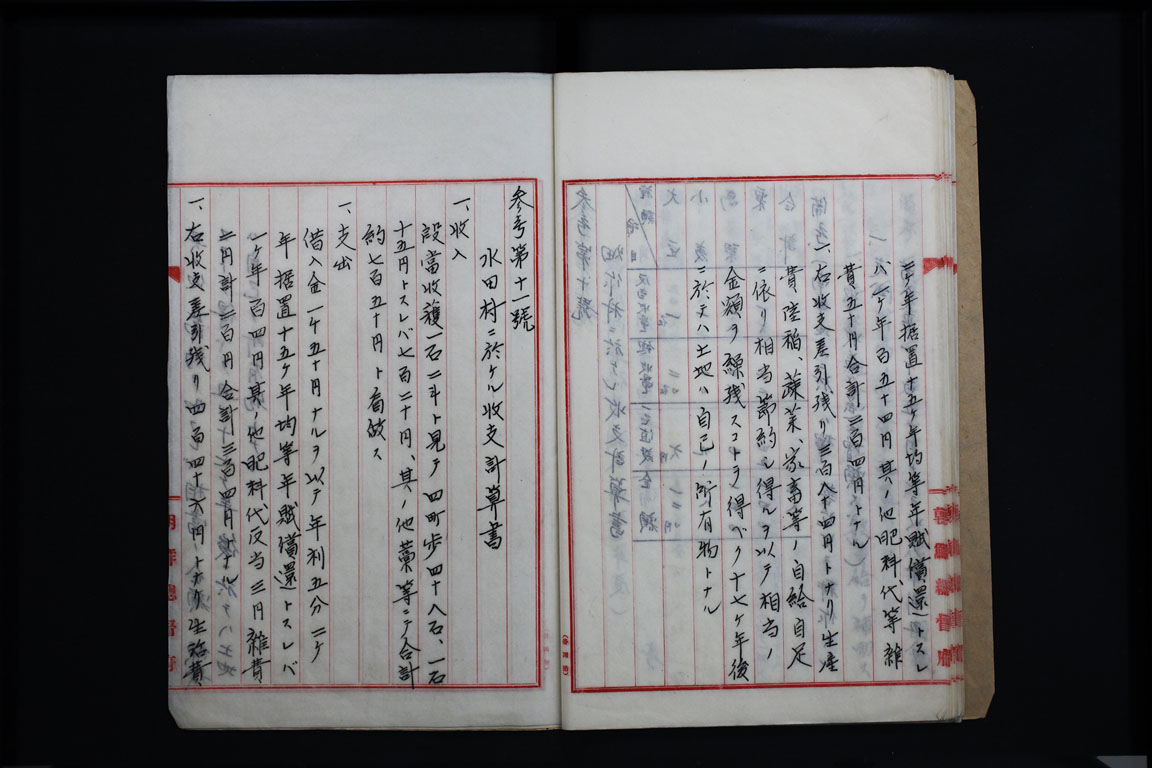 ニケ年据置十五ケ年均等年賦償還トスレ
バ一ケ年百五十四円其ノ他肥料代等雑
費五十円合計二百四円トナル
一、右収支差引残リ三百八十四円トナリ生産
費陸稲、蔬菜、家畜等ノ自給自足
ニ依リ相当節約シ得ルヲ以テ相当ノ
金額ヲ繰残スコトヲ得ベク十七ケ年後
ニ於テハ土地ハ自己ノ所有物トナル
参考第十一號
水田村ニ於ケル收支計算書
一、收入
段當收穫一石二斗ト見テ四町歩四十八石、一石
十五円トスレバ七百二十円、其ノ他藁等ニテ合計
約七百五十円ト看做ス
一、支出
借入金一ケ五十円ナルヲ以テ年利五分二ケ
年据置十五ケ年均等年賦償還トスレバ
一ケ年百四円其ノ他肥料代反当三円雑費
二円計二百円合計三百四円トナル
一、右收支差引残リ四百四十六円トナリ生活費
朝鮮總督府